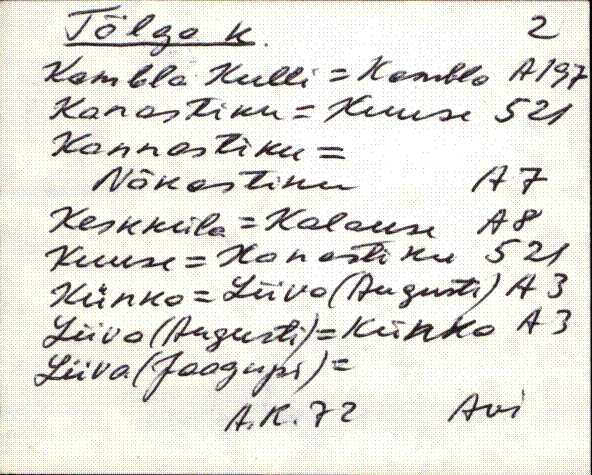 Tõlga k. 2
Kambla Kulli = Kambla A197
Kanastiku = Kuuse 521
Kannastiku =
Nõkastiku A7
Keskküla = Kalause A8
Kuuse = Kanastiku 521
Künka = Liiva (Augusti) A3
Liiva (Augusti) = Künka A3
Liiva (Jaagupi) =
A.K. 72 Avi